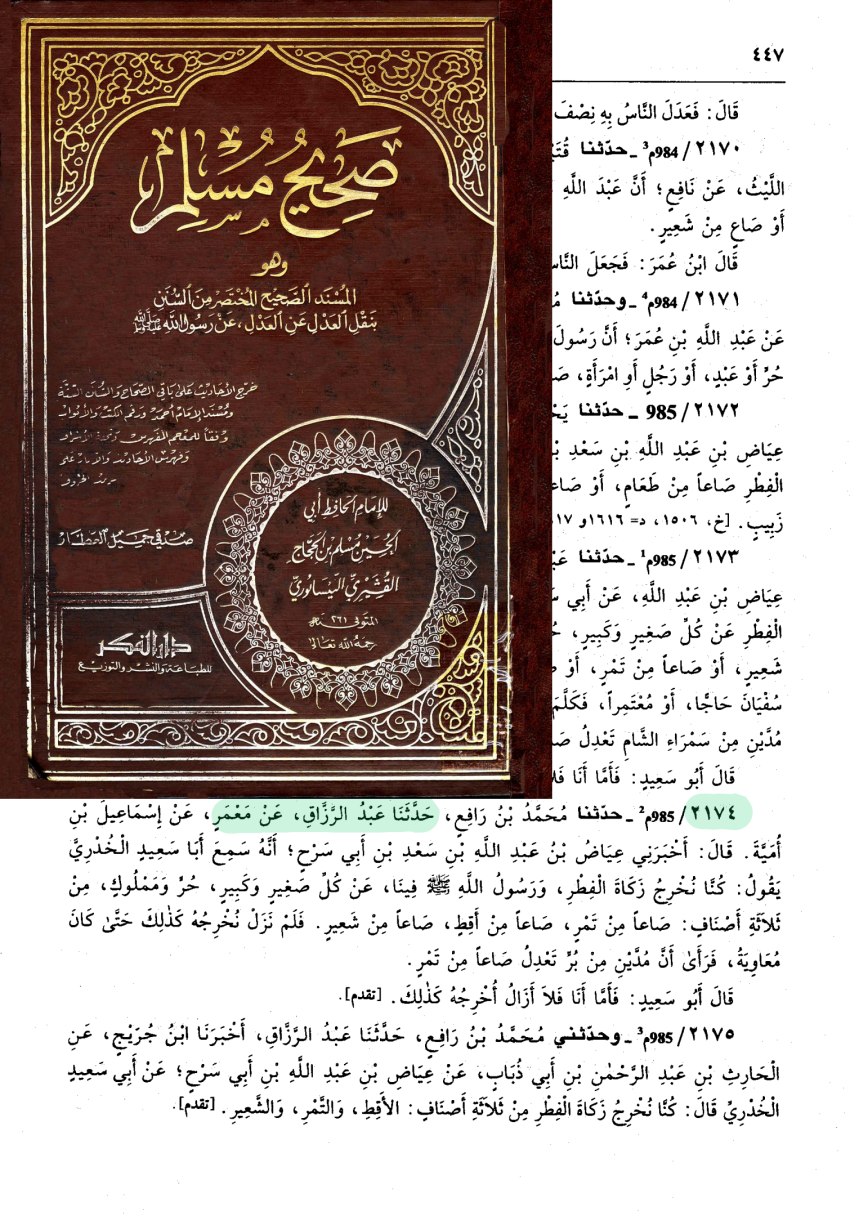 صَحِيحُ مُسْلِم
وهو
المُسْنَد الصَّحِيحُ المُخْتَصَر مِنَ السُّنَنِ
بنَقْلِ العَدْلِ عَنِ العَدْلِ، عَنْ رَسُولِ اللَّهِ ﷺ
خرج الأحاديث على باقي الصحاح والسنن الستة
ومسند الإمام أحمد ورقم الكتب والأبواب
وفقاً للمعجم المفهرس وتحفة الأشراف
صدقي جميل العطار
للإمام الحافظ أبي
الحسين مسلم بن الحجاج
القشيري النيسابوري
المتوفى ٢٦١ هـ
رحمه الله تعالى
دار الفكر
للطباعة والنشر والتوزيع
٤٤٧
قَالَ: فَعَدَلَ النَّاسُ بِهِ نِصْفَ
٢١٧٠/ 984م³ ـ حدّثنا
اللَّيْثُ، عَنْ نَافِعٍ؛ أَنَّ عَبْدَ اللَّهِ
أَوْ صَاعٍ مِنْ شَعِيرٍ.
قَالَ ابْنُ عُمَرَ: فَجَعَلَ
٢١٧١/ 984م⁴ ـ وحدّثنا
عَنْ عَبْدِ اللَّهِ بْنِ عُمَرَ؛ أَنَّ رَسُولَ
حُرٍّ أَوْ عَبْدٍ، أَوْ رَجُلٍ أَوِ امْرَأَةٍ،
٢١٧٢/ 985 ـ حدّثنا
عِيَاضِ بْنِ عَبْدِ اللَّهِ بْنِ سَعْدِ
الْفِطْرِ صَاعاً مِنْ طَعَامٍ، أَوْ
زَبِيبٍ. [خ، ١٥٠٦، د= ١٦١٦و
٢١٧٣/ 985م¹ ـ حدّثنا
عِيَاضِ بْنِ عَبْدِ اللَّهِ، عَنْ أَبِي
الْفِطْرِ عَنْ كُلِّ صَغِيرٍ وَكَبِيرٍ،
شَعِيرٍ، أَوْ صَاعاً مِنْ تَمْرٍ، أَوْ
سُفْيَانَ حَاجًّا، أَوْ مُعْتَمِراً، فَكَلَّمَ
مُدَّيْنِ مِنْ سَمْرَاءِ الشَّامِ تَعْدِلُ
قَالَ أَبُو سَعِيدٍ: فَأَمَّا أَنَا
٢١٧٤/ 985م² ـ حدّثنا مُحَمَّدُ بْنُ رَافِعٍ، حَدَّثَنَا عَبْدُ الرَّزَّاقِ، عَنْ مَعْمَرٍ، عَنْ إِسْمَاعِيلَ بْنِ
أُمَيَّةَ. قَالَ: أَخْبَرَنِي عِيَاضُ بْنُ عَبْدِ اللَّهِ بْنِ سَعْدِ بْنِ أَبِي سَرْحٍ؛ أَنَّهُ سَمِعَ أَبَا سَعِيدٍ الْخُدْرِيَّ
يَقُولُ: كُنَّا نُخْرِجُ زَكَاةَ الْفِطْرِ، وَرَسُولُ اللَّهِ ﷺ فِينَا، عَنْ كُلِّ صَغِيرٍ وَكَبِيرٍ، حُرٍّ وَمَمْلُوكٍ، مِنْ
ثَلَاثَةِ أَصْنَافٍ: صَاعاً مِنْ تَمْرٍ، صَاعاً مِنْ أَقِطٍ، صَاعاً مِنْ شَعِيرٍ. فَلَمْ نَزَلْ نُخْرِجُهُ كَذٰلِكَ حَتَّىٰ كَانَ
مُعَاوِيَةُ، فَرَأَىٰ أَنَّ مُدَّيْنِ مِنْ بُرٍّ تَعْدِلُ صَاعاً مِنْ تَمْرٍ.
قَالَ أَبُو سَعِيدٍ: فَأَمَّا أَنَا فَلاَ أَزَالُ أُخْرِجُهُ كَذٰلِكَ. [تقدم].
٢١٧٥/ 985م³ ـ وحدّثني مُحَمَّدُ بْنُ رَافِعٍ، حَدَّثَنَا عَبْدُ الرَّزَّاقِ، أَخْبَرَنَا ابْنُ جُرَيْجٍ، عَنِ
الْحَارِثِ بْنِ عَبْدِ الرَّحْمٰنِ بْنِ أَبِي ذُبَابٍ، عَنْ عِيَاضِ بْنِ عَبْدِ اللَّهِ بْنِ أَبِي سَرْحٍ؛ عَنْ أَبِي سَعِيدٍ
الْخُدْرِيِّ قَالَ: كُنَّا نُخْرِجُ زَكَاةَ الْفِطْرِ مِنْ ثَلاَثَةِ أَصْنَافٍ: الأَقِطِ، وَالتَّمْرِ، وَالشَّعِيرِ. [تقدم].